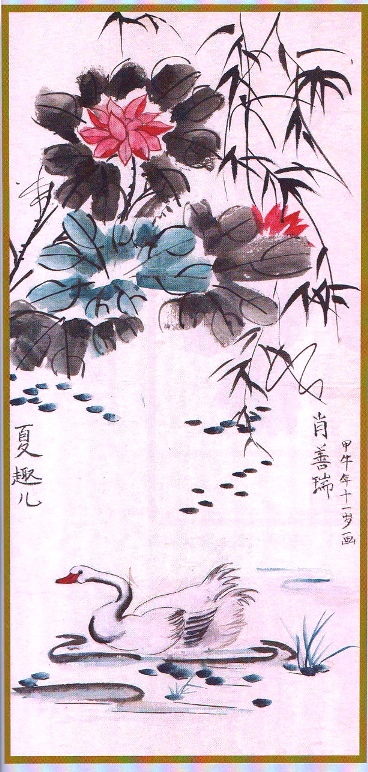 夏趣儿
肖善瑞
甲午年十一岁画